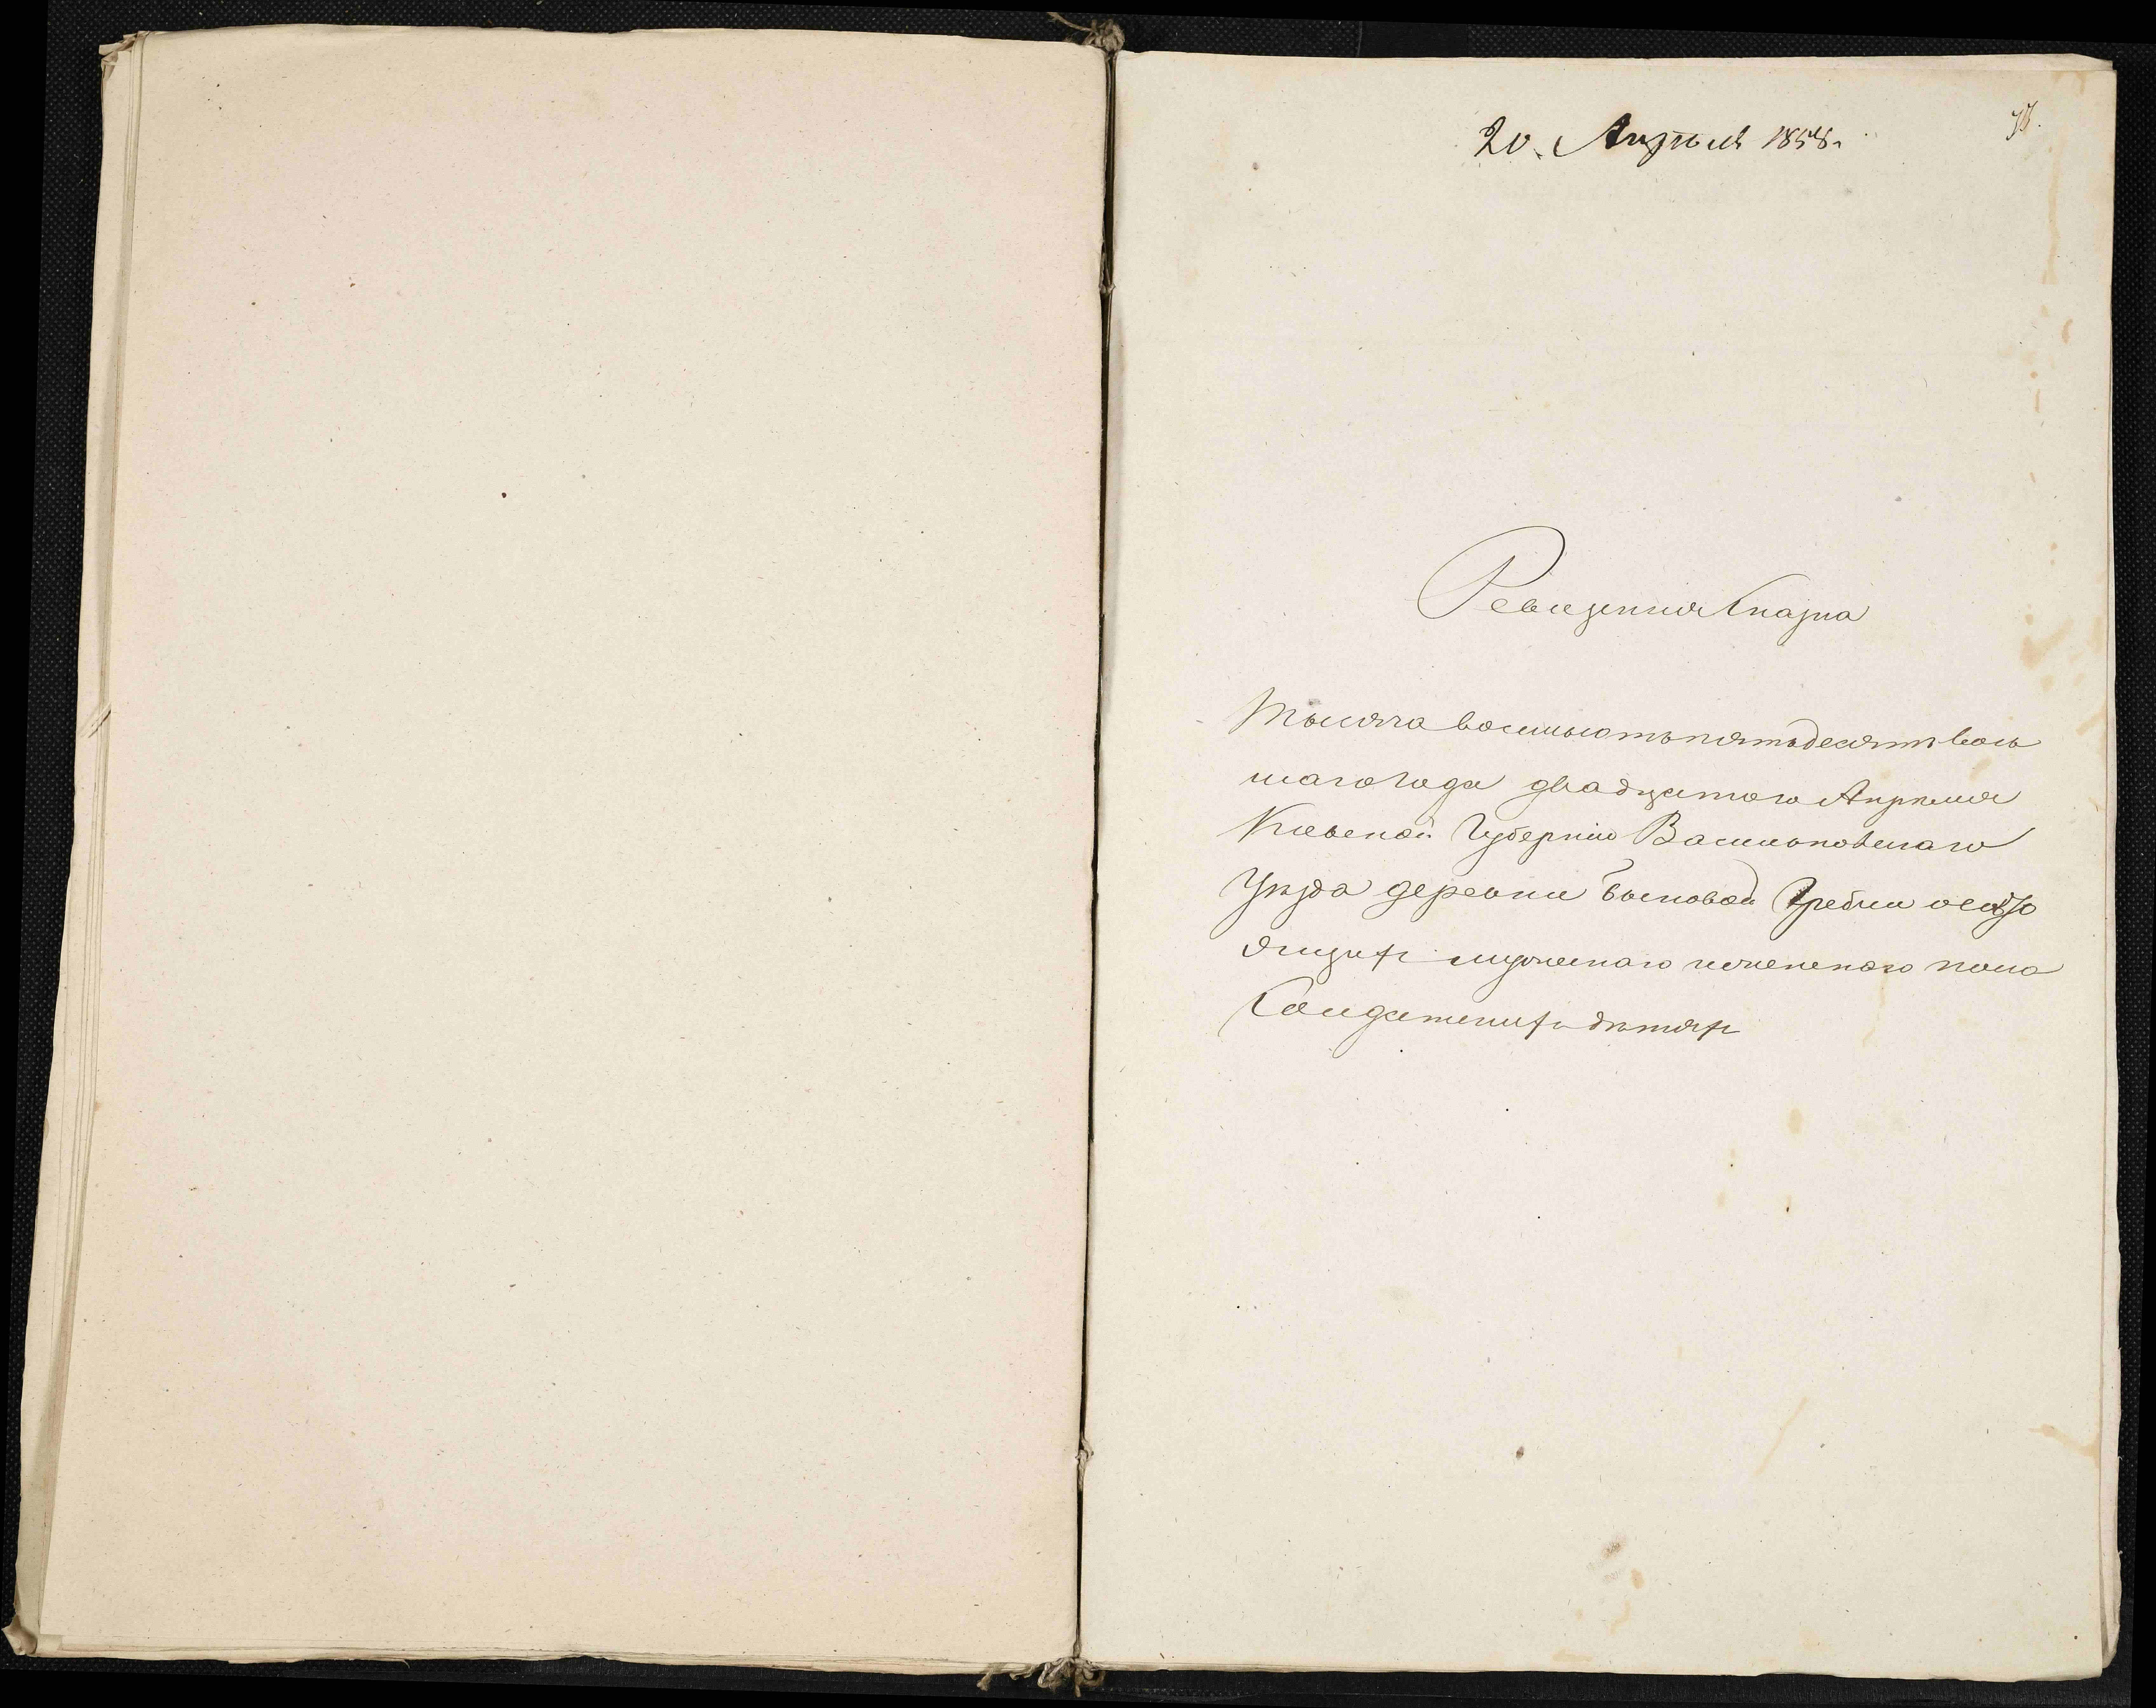 20. Апрѣля 1858.
Ревизская Сказка
Тысяча восемьсотъ пятьдесятъ вось
маго года двадцатого Апрѣля
Кіевской Губерніи Васильковскаго
Уѣзда деревни Быковой Гребли о
мужескаго и женскаго пола
Солдатскихъ дѣтяхъ